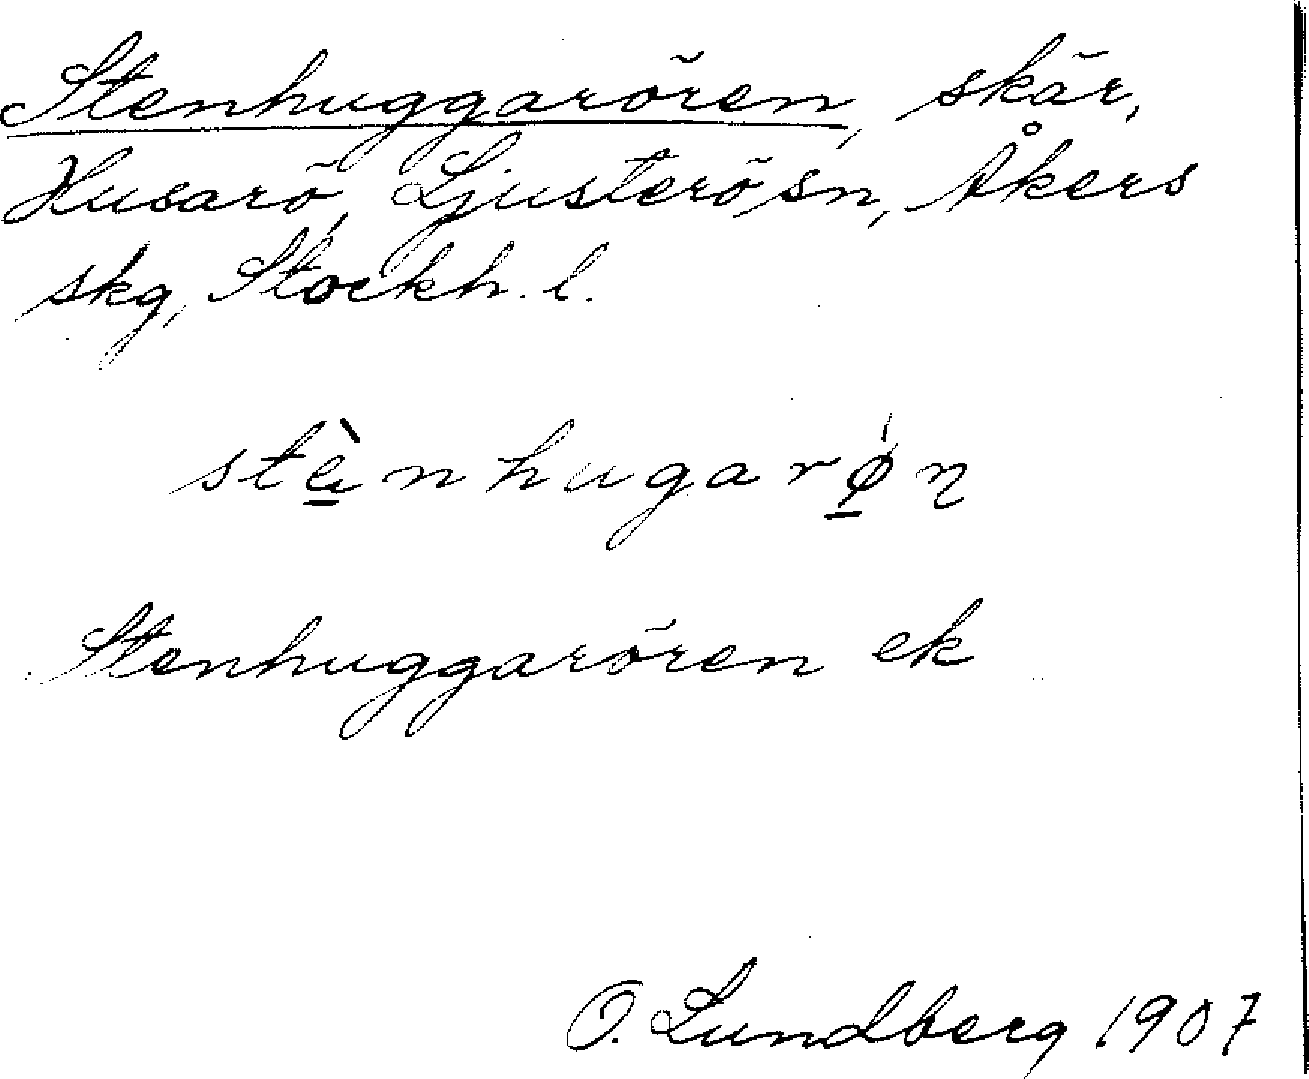 Stenhuggarören, skär,
Husarö, Ljusterö sn, Åkers
skg, Stockh. l.
stè̱nhugarǿ̱n
Stenhuggarören ek
O. Lundberg 1907